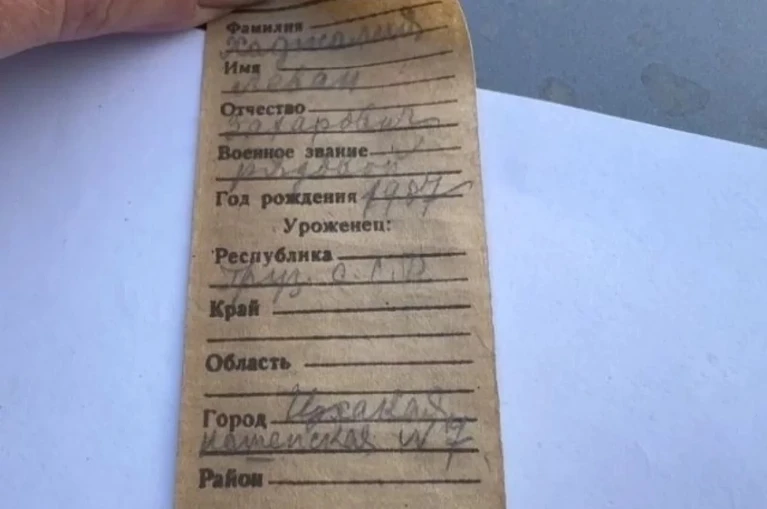 Фамилия
Имя
Леван
Отчество
Захарович
Военное звание
рядовой
Год рождения 1907
Уроженец:
Республика
Груз. С.С.Р.
Край
Область
Город Цхакая
Район